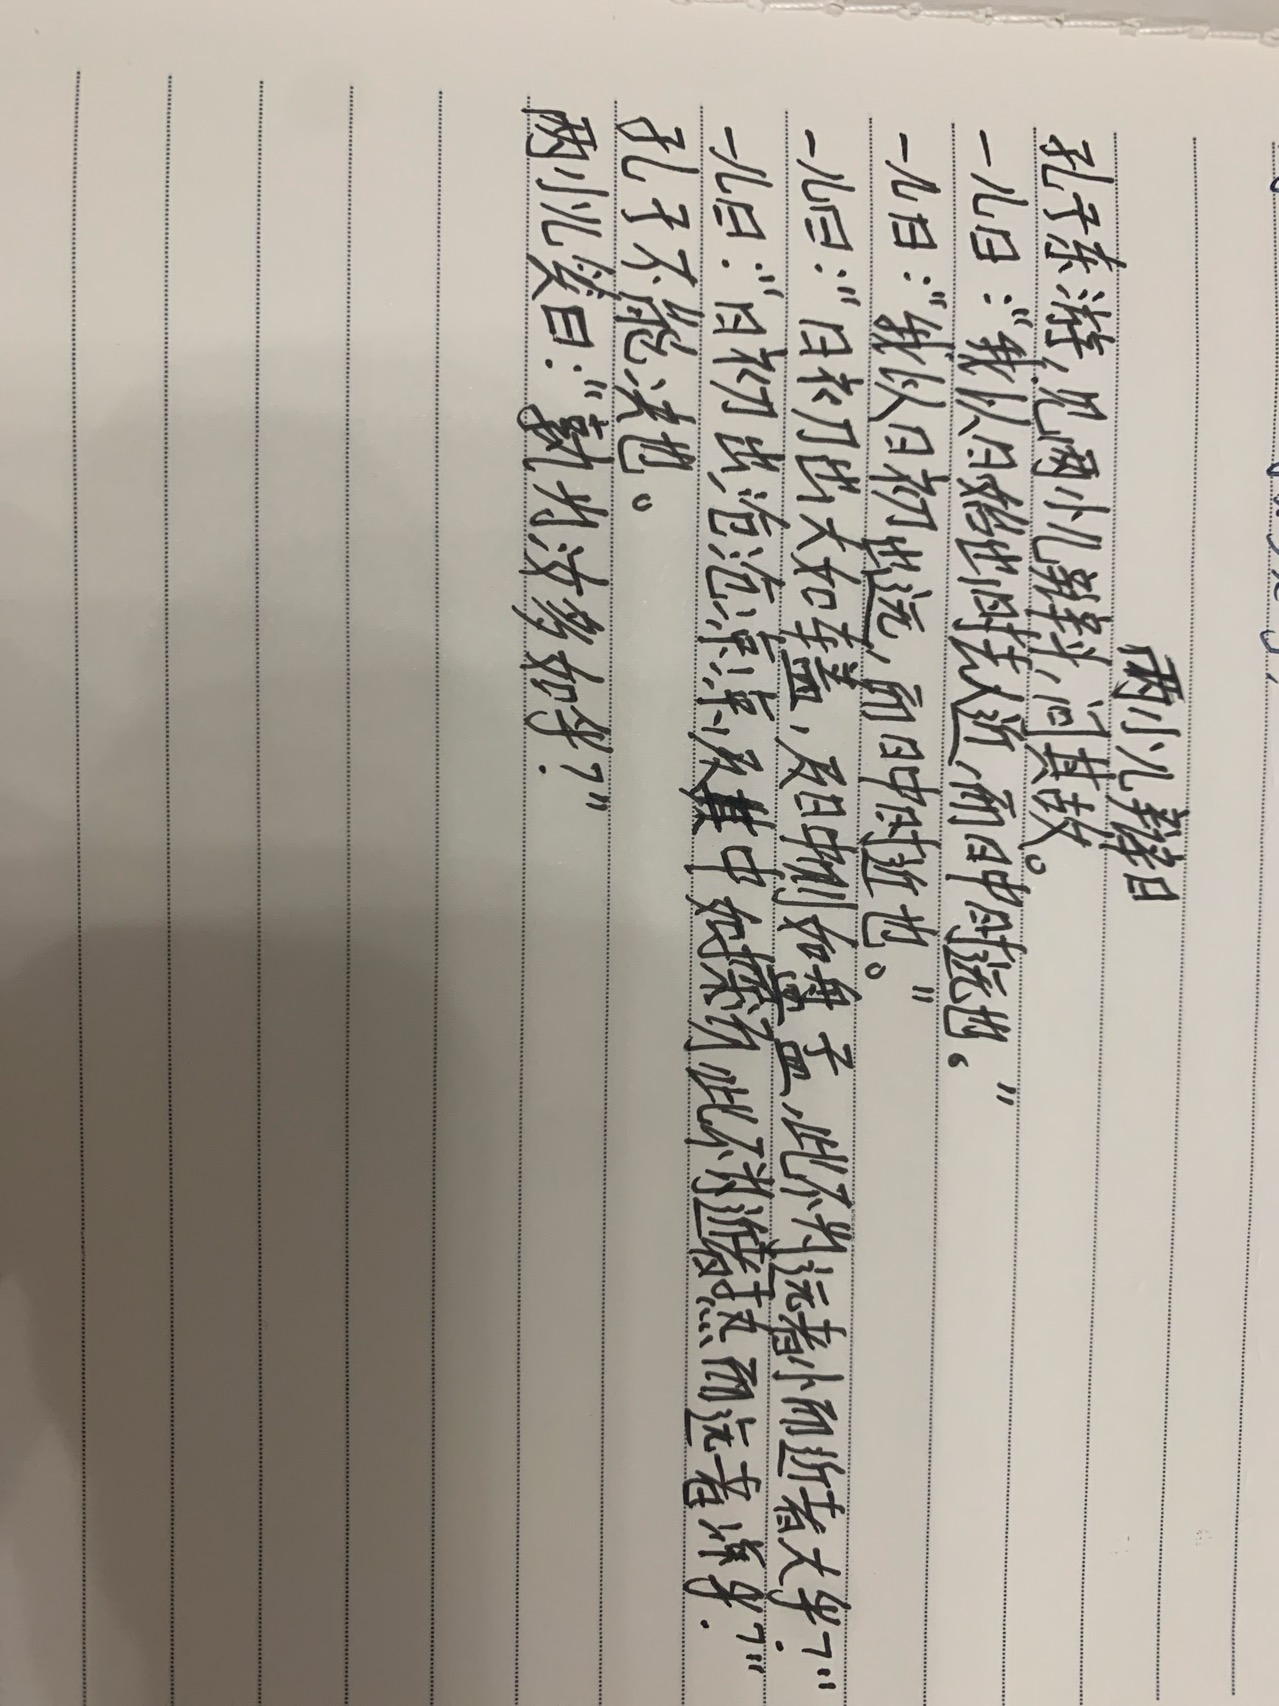 两小儿辩日
孔子东游,见两小儿辩斗,问其故。
一儿曰:“我以日始出时去人近,而日中时远也。”
一儿曰:“我以日初出远,而日中时近也。”
一儿曰:“日初出大如车盖,及日中则如盘盂,此不为远者小而近者大乎?”
一儿曰:“日初出沧沧凉凉,及其中如探汤,此不为近者热而远者凉乎?”
孔子不能决也。
两小儿笑曰:“孰为汝多知乎?”